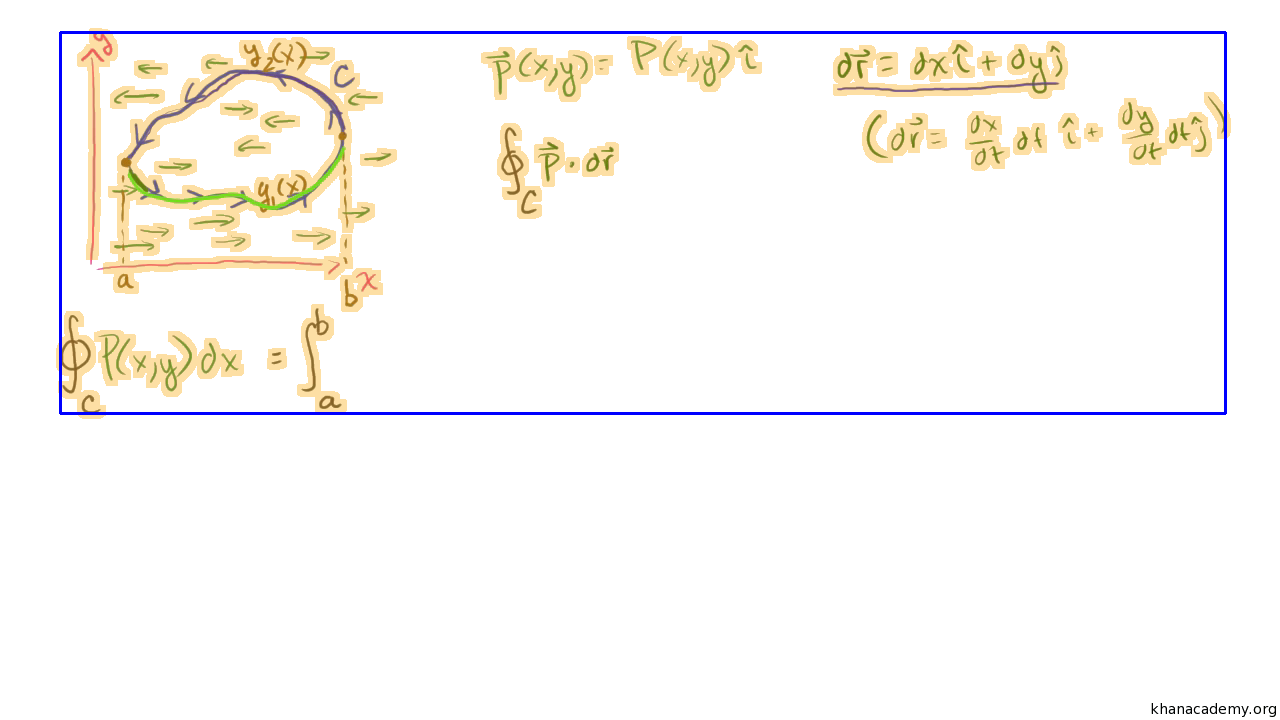 y
y₂(x)
C
y₁(x)
a
b
x
P⃗(x,y) = P(x,y) î
∮_C P⃗ · dr⃗
dr⃗ = dx î + dy ĵ
(dr⃗ = dx/dt dt î + dy/dt dt ĵ)
∮_C P(x,y) dx = ∫_a^b
khanacademy.org